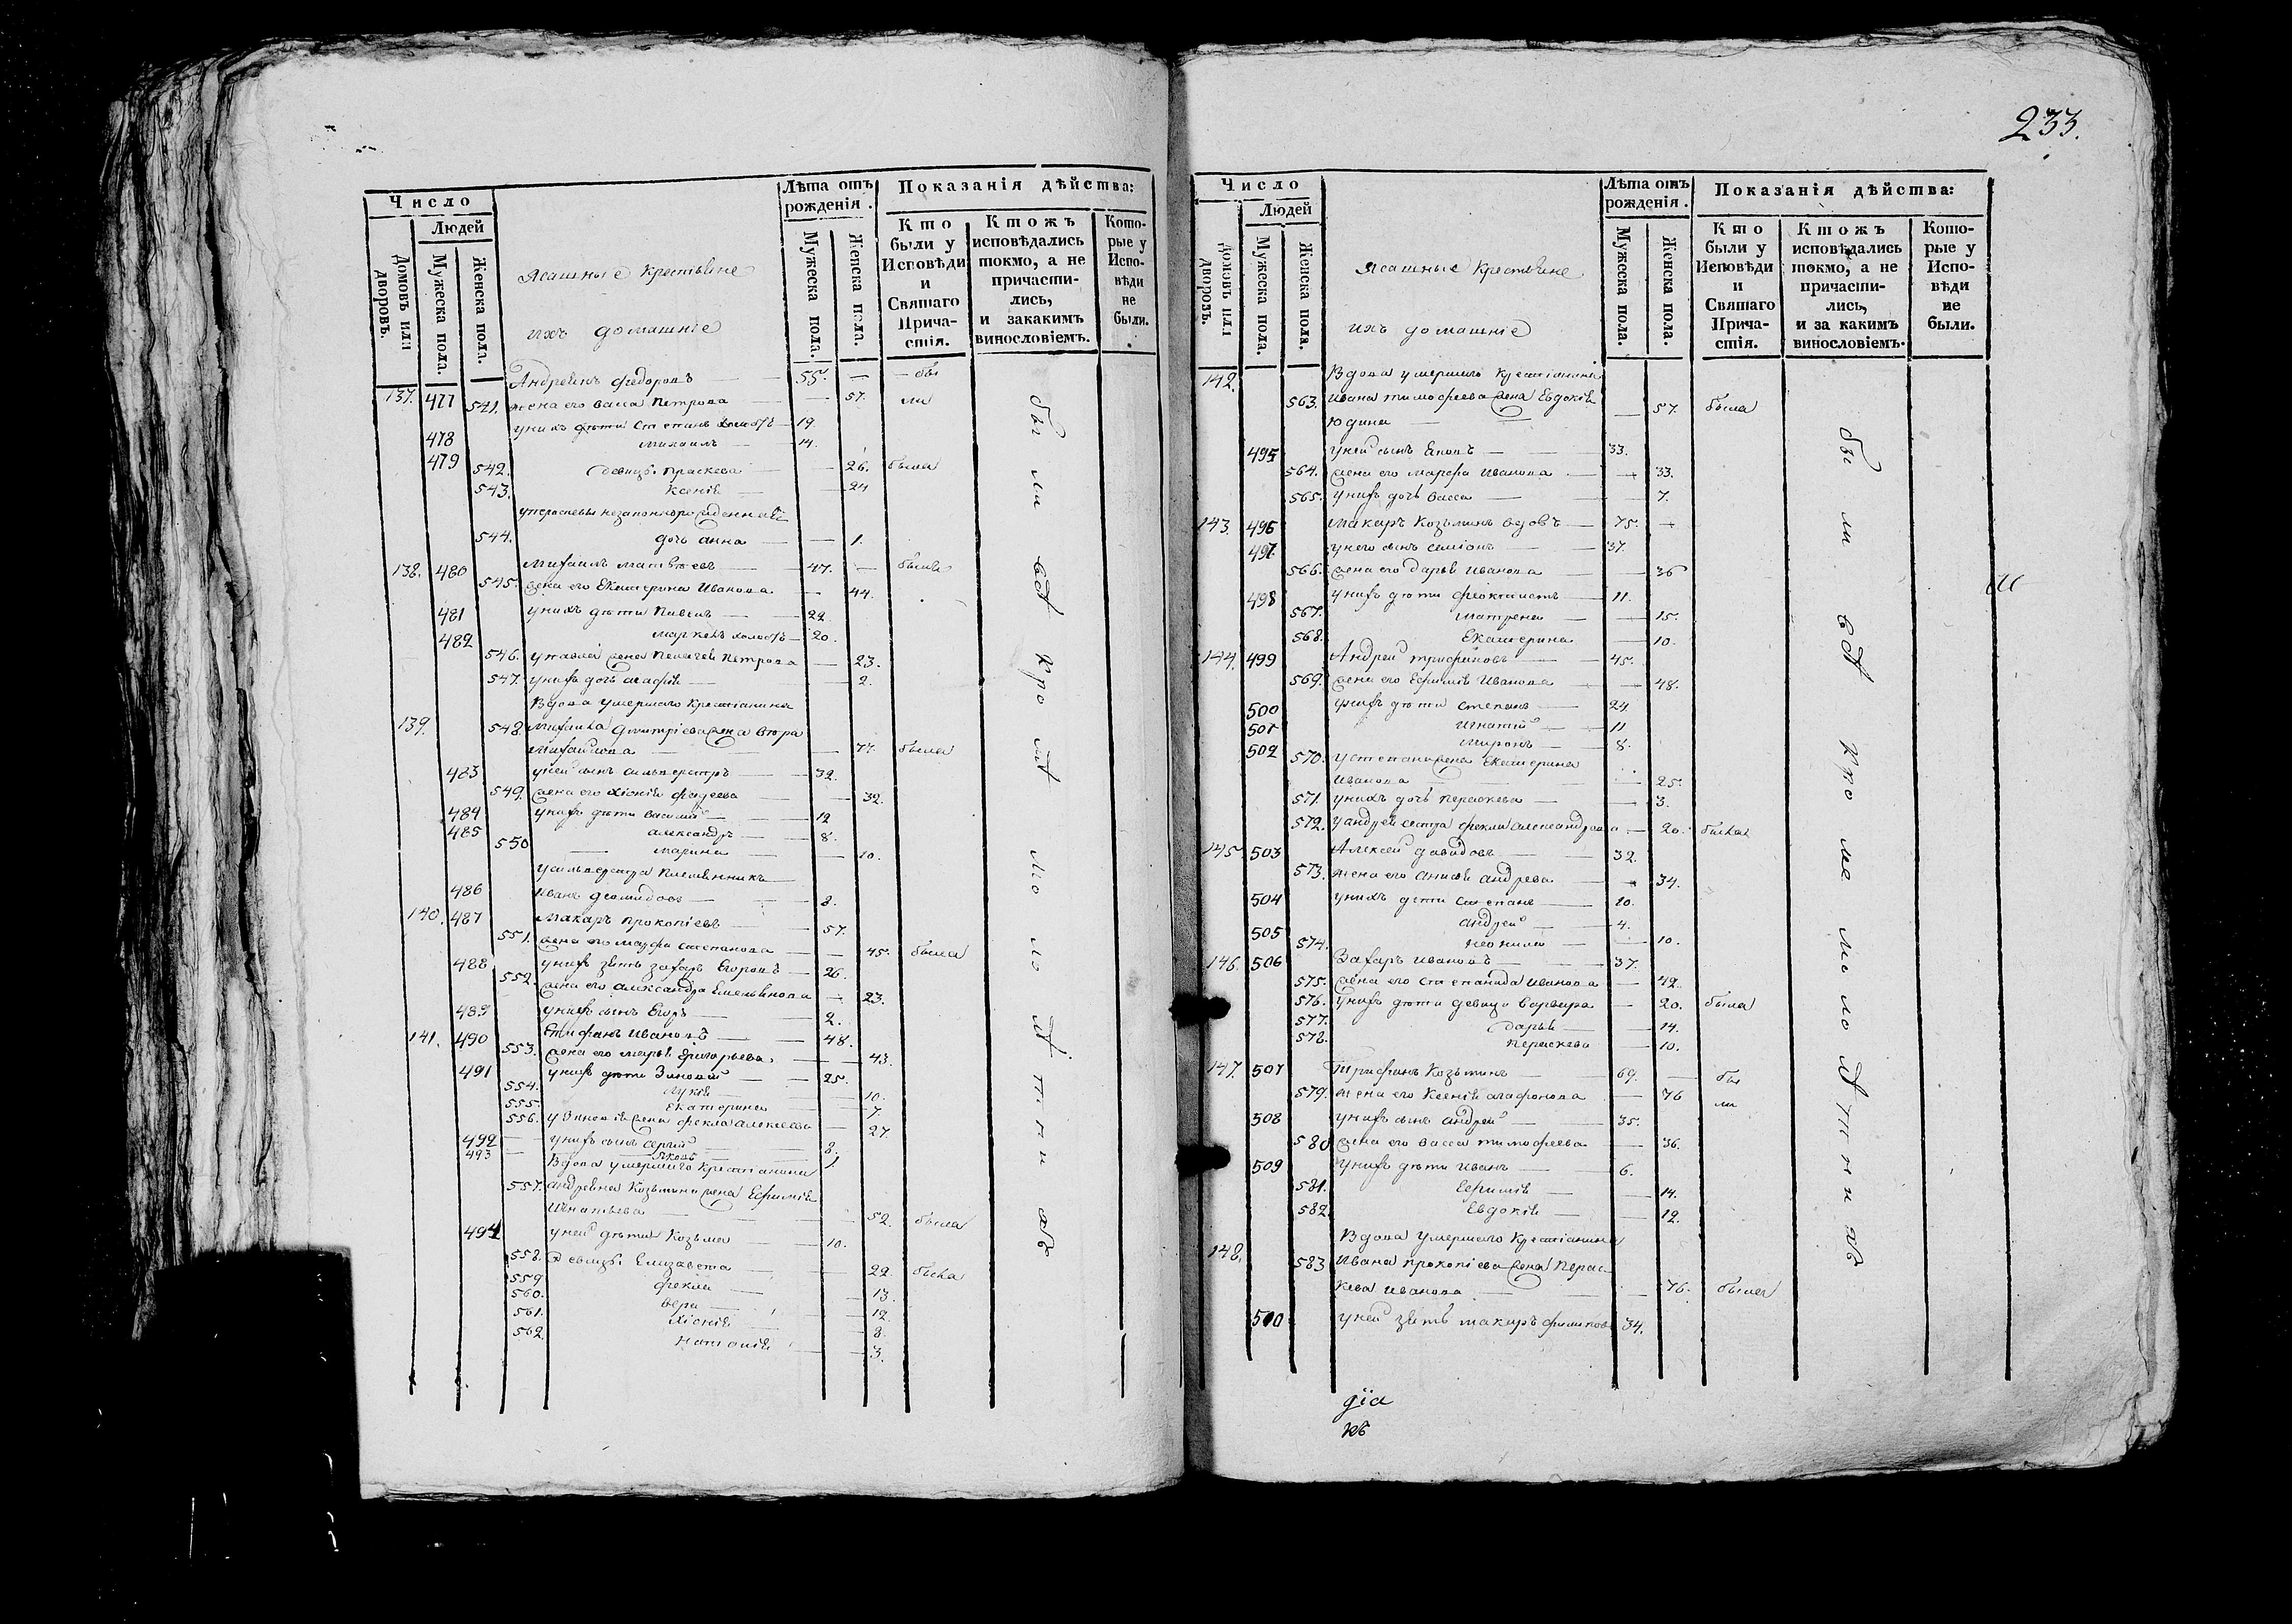 233.
Число
Людей
Домовъ или дворовъ.
Мужеска пола.
Женска пола.
Ясашные крестьяне
ихъ домашніе
Лѣта отъ рожденія.
Мужеска пола.
Женска пола.
Показанія дѣйства:
Кто были у Исповѣди и Святаго Причастія.
Ктожъ исповѣдались токмо, а не причастились, и закакимъ винословіемъ.
Которые у Исповѣди не были.
Андреянъ Федоровъ — 55. — бы
137. 477 541. жена его васса Петрова — 57. ли
478 унихъ дѣти Степанъ холостъ — 19.
479 Михаилъ — 14.
542. девицы Праскева — 26. была
543. Ксенія — 24
544. дочь анна — 1.
138. 480 Михаилъ Матвѣевъ — 47. —
545. жена его Екатерина Иванова — 44.
481 унихъ дѣти Павелъ — 22
482 холостъ — 20.
546. упавла жена Пелагея Петрова — 23.
547. унихъ дочь агафія — 2.
Вдова умершаго крестіанина
139. 548 Михаила Дмитріева жена
Михайлова — 77. была
483 уней сынъ Сильвестръ — 32.
549. жена его Хіонія Фадеева — 32.
484 унихъ дѣти василій — 12
485 александръ — 8.
550 — Марина — 10.
усильвестра племянникъ
486 Иванъ — 2.
140. 487 Макаръ Прокопіевъ — 57.
551. жена его марфа степанова — 45. была
488 унихъ зять захаръ Егоровъ — 26.
552. жена его александра Емельянова — 23.
489 унихъ сынъ Егоръ — 2.
141. 490 Епифанъ Ивановъ — 48.
553. жена его марья Григорьева — 43.
491 унихъ дѣти Зиновій — 25.
554. Лукія — 10.
555. Екатерина — 7.
556. жена фекла алексеева — 27.
492 — унихъ сынъ Сергій — 2.
493 — Яковъ — 1.
Вдова умершаго крестіанина
557. андреяна Козьмина жена Ефимія
Игнатьева — 52. была
494 уней дѣти Козьма — 10.
558. Девицы Елизавета — 22. была
559. фекла — 13.
560. вера — 12.
561. Хіонія — 8.
562. — 3.
были вст кромт молоттнихъ
Число
Людей
Домовъ или дворовъ.
Мужеска пола.
Женска пола.
Ясашные крестьяне
ихъ домашніе
Лѣта отъ рожденія.
Мужеска пола.
Женска пола.
Показанія дѣйства:
Кто были у Исповѣди и Святаго Причастія.
Ктожъ исповѣдались токмо, а не причастились, и за какимъ винословіемъ.
Которые у Исповѣди не были.
142. Вдова умершаго крестіанина
563. Ивана тимофеева жена Евдокія — 57. была
Юдина —
495 уней сынъ — 33.
564. жена его марфа Иванова — 33.
565. унихъ дочь васса — 7.
143. 496 Макаръ Козьминъ вдовъ — 75. —
497. унего сынъ семіонъ — 37.
566. жена его дарья Иванова — 36
498 унихъ дѣти феоктистъ — 11.
567. матрена — 15.
568. Екатерина — 10.
144. 499 Андрей трифоновъ — 45.
569. жена его Ефимія Иванова — 48.
500 унихъ дѣти степанъ — 24
501 игнатій — 11
502 миронъ — 8.
570. устепана жена Екатерина
Иванова — 25.
571. унихъ дочь параскева — 3.
572. уандрея сестра фекла александрова — 20. была
145. 503 Алексей давидовъ — 32.
573. жена его анисія андреева — 34.
504 унихъ дѣти степанъ — 10.
505 андрей — 4.
574. неонила — 10.
146. 506 Захаръ ивановъ — 37.
575. жена его степанида иванова — 42
576. унихъ дѣти девица варвара — 20. была
577. дарья — 14.
578. параскева — 10.
147. 507 Трифанъ Козьминъ — 69. — бы
579. жена его Ксенія агафонова — 76 ли
508 унихъ сынъ андрей — 35.
580 жена его васса тимофеева — 36.
509 унихъ дѣти иванъ — 6.
581. Ефимія — 14.
582. Евдокія — 12.
Вдова умершаго крестіанина
148. 583 Ивана прокопіева жена Парас
кева иванова — 76. была
510 уней зять макаръ филиповъ 34.
были вст кроме молоттнихъ
діа
къ